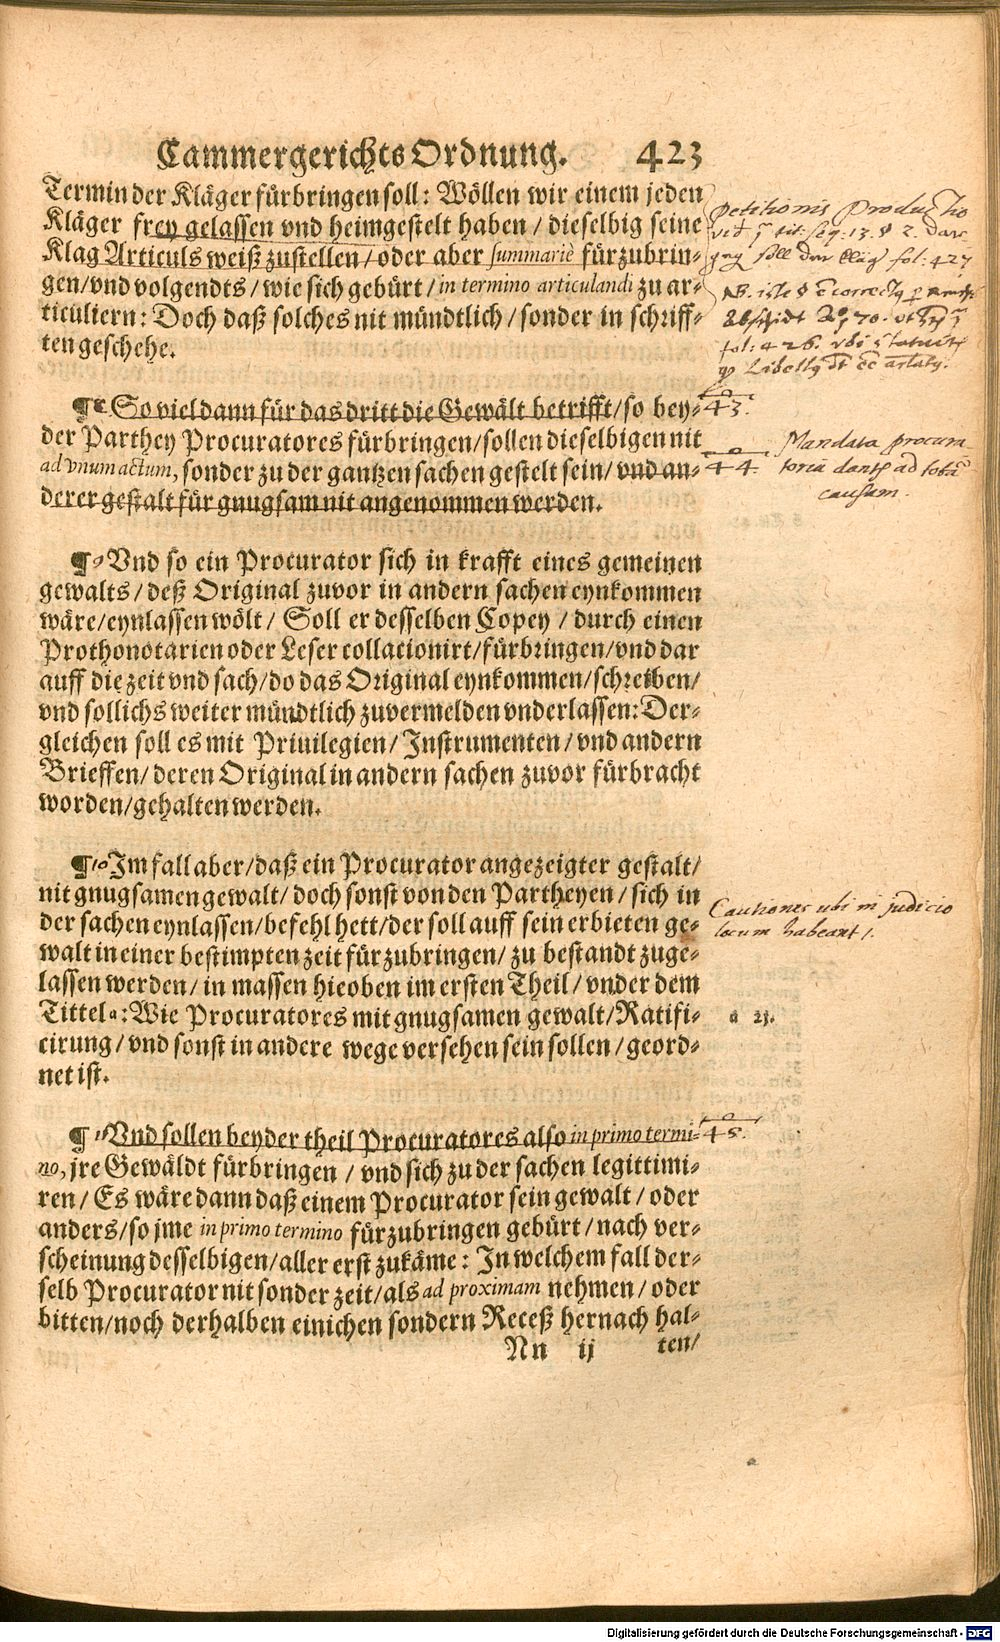 Cammergerichts Ordnung. 423
Termin der Kläger fürbringen soll: Wöllen wir einem jeden
Kläger frey gelassen vnd heimgestelt haben / dieselbig seine
Klag Articuls weiß zustellen / oder aber summariè fürzubrin-
gen/vnd volgendts / wie sich gebürt / in termino articulandi zu ar-
ticuliern: Doch daß solches nit mündtlich / sonder in schriff-
ten geschehe.
¶ 8 So viel dann für das dritt die Gewält betrifft/so bey-
der Parthey Procuratores fürbringen/sollen dieselbigen nit
ad vnum actum, sonder zu der gantzen sachen gestelt sein/ vnd an-
derer gestalt für gnugsam nit angenommen werden.
¶ 9 Vnd so ein Procurator sich in krafft eines gemeinen
gewalts / deß Original zuvor in andern sachen eynkommen
wäre/eynlassen wölt / Soll er desselben Copey / durch einen
Prothonotarien oder Leser collationirt/fürbringen/vnd dar
auff die zeit vnd sach/do das Original eynkommen/schreiben/
vnd sollichs weiter mündtlich zuvermelden vnderlassen: Der-
gleichen soll es mit Priuilegien / Instrumenten / vnd andern
Brieffen/ deren Original in andern sachen zuvor fürbracht
worden/gehalten werden.
¶ 10 Im fall aber/daß ein Procurator angezeigter gestalt/
nit gnugsamen gewalt/ doch sonst von den Partheyen / sich in
der sachen eynlassen/befehl hett/der soll auff sein erbieten ge-
walt in einer bestimpten zeit fürzubringen/ zu bestandt zuge-
lassen werden / in massen hieoben im ersten Theil / vnder dem
Tittel a: Wie Procuratores mit gnugsamen gewalt/Ratifi-
cirung / vnd sonst in andere wege versehen sein sollen / geord-
net ist.
¶ 11 Vnd sollen beyder theil Procuratores also in primo termi-
no, jre Gewäldt fürbringen / vnd sich zu der sachen legittimi-
ren / Es wäre dann daß einem Procurator sein gewalt / oder
anders/so jme in primo termino fürzubringen gebürt / nach ver-
scheinung desselbigen/aller erst zukäme: In welchem fall der-
selb Procurator nit sonder zeit/als ad proximam nehmen / oder
bitten/noch derhalben einichen sondern Receß hernach hal-
Nn ij ten/
petitionis Productio
fol: 427
NB.
fol: 426. vbi
43.
44.
Mandata procura
toria dantur ad totã
causam.
Cautiones ubi in judicio
locum habeant /.
a 23.
45.
Digitalisierung gefördert durch die Deutsche Forschungsgemeinschaft - DFG